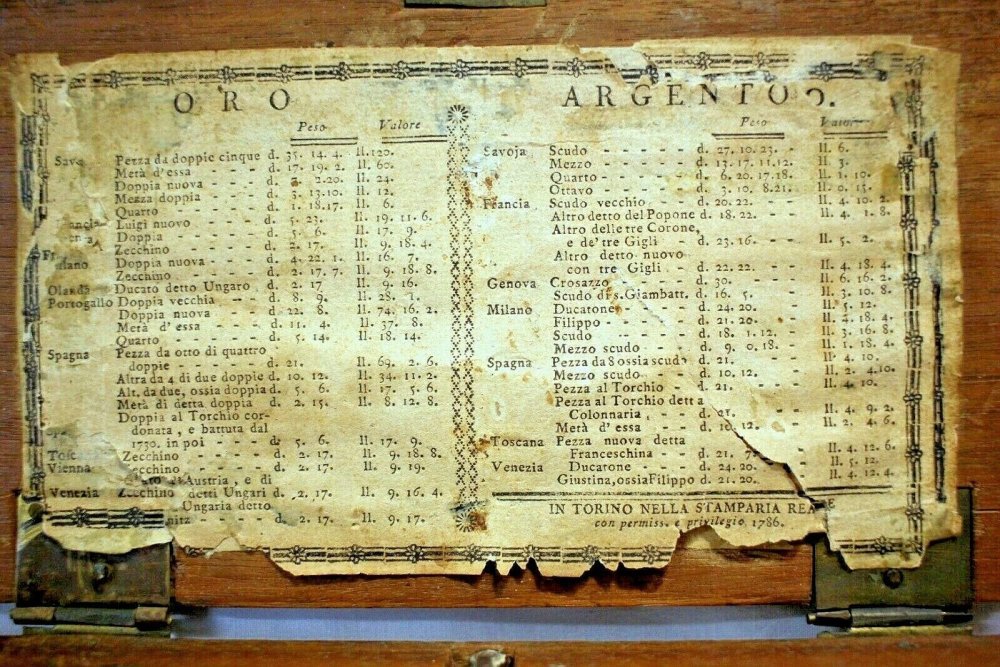 ORO
Peso Valore
Pezza da doppie cinque d. 35. 14. 4. ll. 120.
Metà d'essa - - - d. 17. 19. 2. ll. 60.
Doppia nuova - - - d. 2.20. ll. 24.
Mezza doppia - - - d. 3. 13.10. ll. 12.
Quarto - - - d. 1. 18.17. ll. 6.
Luigi nuovo - - - d. 5. 23. ll. 19. 11. 6.
Doppia - - - d. 5. 6. ll. 17. 9.
Zecchino - - - d. 2. 17. ll. 9. 18. 4.
Doppia nuova - - - d. 4. 22. 1. ll. 16. 7.
Zecchino - - - d. 2. 17. 7. ll. 9. 18. 8.
Olanda Ducato detto Ungaro d. 2. 17 ll. 9. 16.
Portogallo Doppia vecchia - - d. 8. 9. ll. 28.
Doppia nuova - - - d. 22. 8. ll. 74. 16. 2.
Metà d'essa - - - d. 11. 4. ll. 37. 8.
Quarto - - - d. 5. 14. ll. 18. 14.
Spagna Pezza da otto di quattro
doppie - - - d. 21. ll. 69. 2. 6.
Altra da 4 di due doppie d. 10. 12. ll. 34. 11. 2.
Alt. da due, ossia doppia d. 5. 6. ll. 17. 5. 6.
Metà di detta doppia d. 2. 15. ll. 8. 12. 8.
Doppia al Torchio cor-
donata, e battuta dal
1730. in poi - - - d. 5. 6. ll. 17. 9.
Zecchino - - - d. 2. 17. ll. 9. 18. 8.
Vienna Zecchino - - - d. 2. 17. ll. 9. 19.
d'Austria, e di
Venezia Zecchino detti Ungari d. 2. 17. ll. 9. 16. 4.
Ungaria detto
nitz - - d. 2. 17. ll. 9. 17.
ARGENTO
Peso Valore
Savoja Scudo - - - d. 27. 10. 23. - ll. 6.
Mezzo - - - d. 13. 17. 11.12. ll. 3.
Quarto - - - d. 6. 20. 17.18. ll. 1. 10.
Ottavo - - - d. 3. 10. 8.21. ll. 0. 15.
Francia Scudo vecchio - d. 20. 22. - - ll. 4. 10. 2.
Altro detto del Popone d. 18. 22. - - ll. 4. 1. 8.
Altro delle tre Corone,
e de' tre Gigli - d. 23. 16. - - ll. 5. 2.
Altro detto nuovo
con tre Gigli - d. 22. 22. - - ll. 4. 18. 4.
Genova Crosazzo - - - d. 30. ll. 6. 16. 2.
Scudo di s. Giambatt. d. 16. 5. ll. 3. 10. 8.
Milano Ducatone - - d. 24. 20. ll. 5. 12.
Filippo - - - d. 21. 20. ll. 4. 18. 4.
Scudo - - - d. 18. 1. 12. ll. 3. 16. 8.
Mezzo scudo - - d. 9. 0. 18. ll. 1. 18. 4.
Spagna Pezza da 8 ossia scudo d. 21. ll. 4. 10.
Mezzo scudo - - d. 10. 12. ll. 2. 4.10.
Pezza al Torchio - d. 21. ll. 4. 10.
Pezza al Torchio detta
Colonnaria - - d. 21. ll. 4. 9. 2.
Metà d'essa - - d. 10. 12. ll. 2. 4. 6.
Toscana Pezza nuova detta
Franceschina - - d. 21. ll. 4. 12. 6.
Venezia Ducatone - - d. 24. 20. ll. 5. 12.
Giustina, ossia Filippo d. 21. 20. ll. 4. 12. 4.
IN TORINO NELLA STAMPARIA
con permiss. e privilegio, 1786.